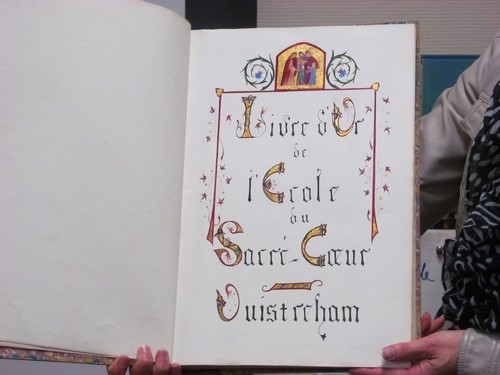 Livre d'Or
de
l'Ecole
du
Sacré-Cœur
Ouistreham